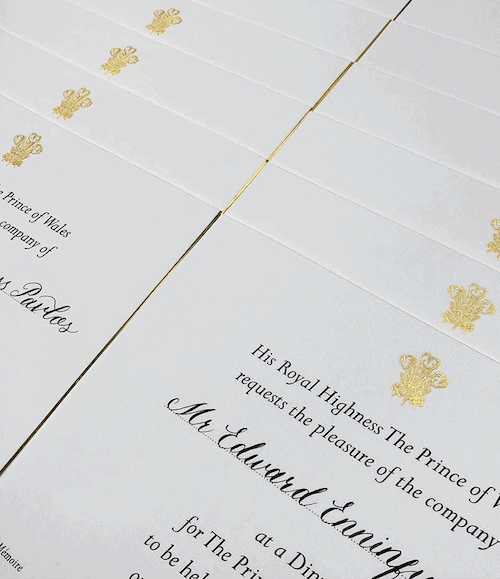 Prince of Wales
company of
Pavlos
Mémoire
His Royal Highness The Prince of
requests the pleasure of the company
Mr Edward Enninfu
at a Dinn
for The Prin
to be hel